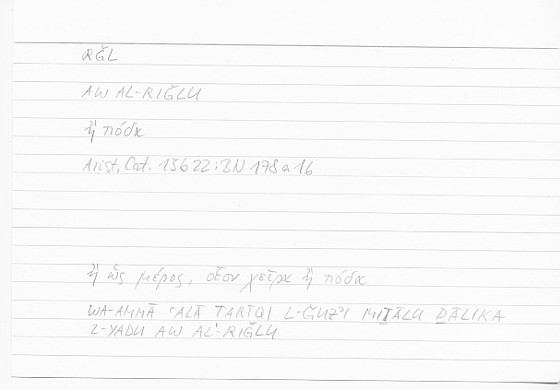 RǦL
AW AL-RIǦLU
ἢ πόδα
Arist., Cat. 15b22; BN 178a16
ἢ ὡς μέρος, οἷον χεῖρα ἢ πόδα
WA-AMMĀ ʿALĀ ṬARĪQI L-ǦUZʾI MIṮĀLU ḎĀLIKA
L-YADU AW AL-RIǦLU